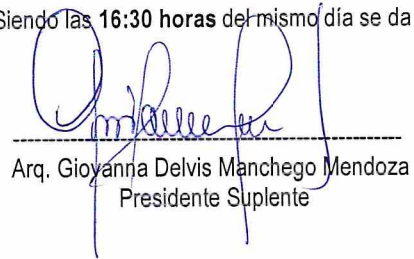 Siendo las 16:30 horas del mismo día se da
Arq. Giovanna Delvis Manchego Mendoza
Presidente Suplente